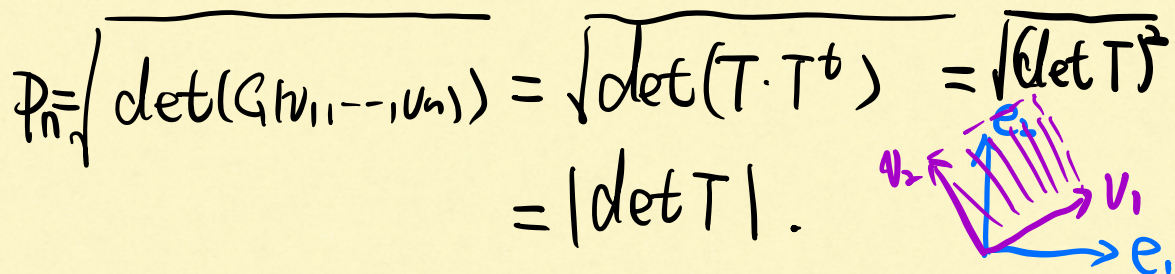 Pₙ = √det(G(v₁, ---, vₙ)) = √det(T · Tᵗ) = √(det T)²
= |det T| .
e₂
v₂
v₁
e₁